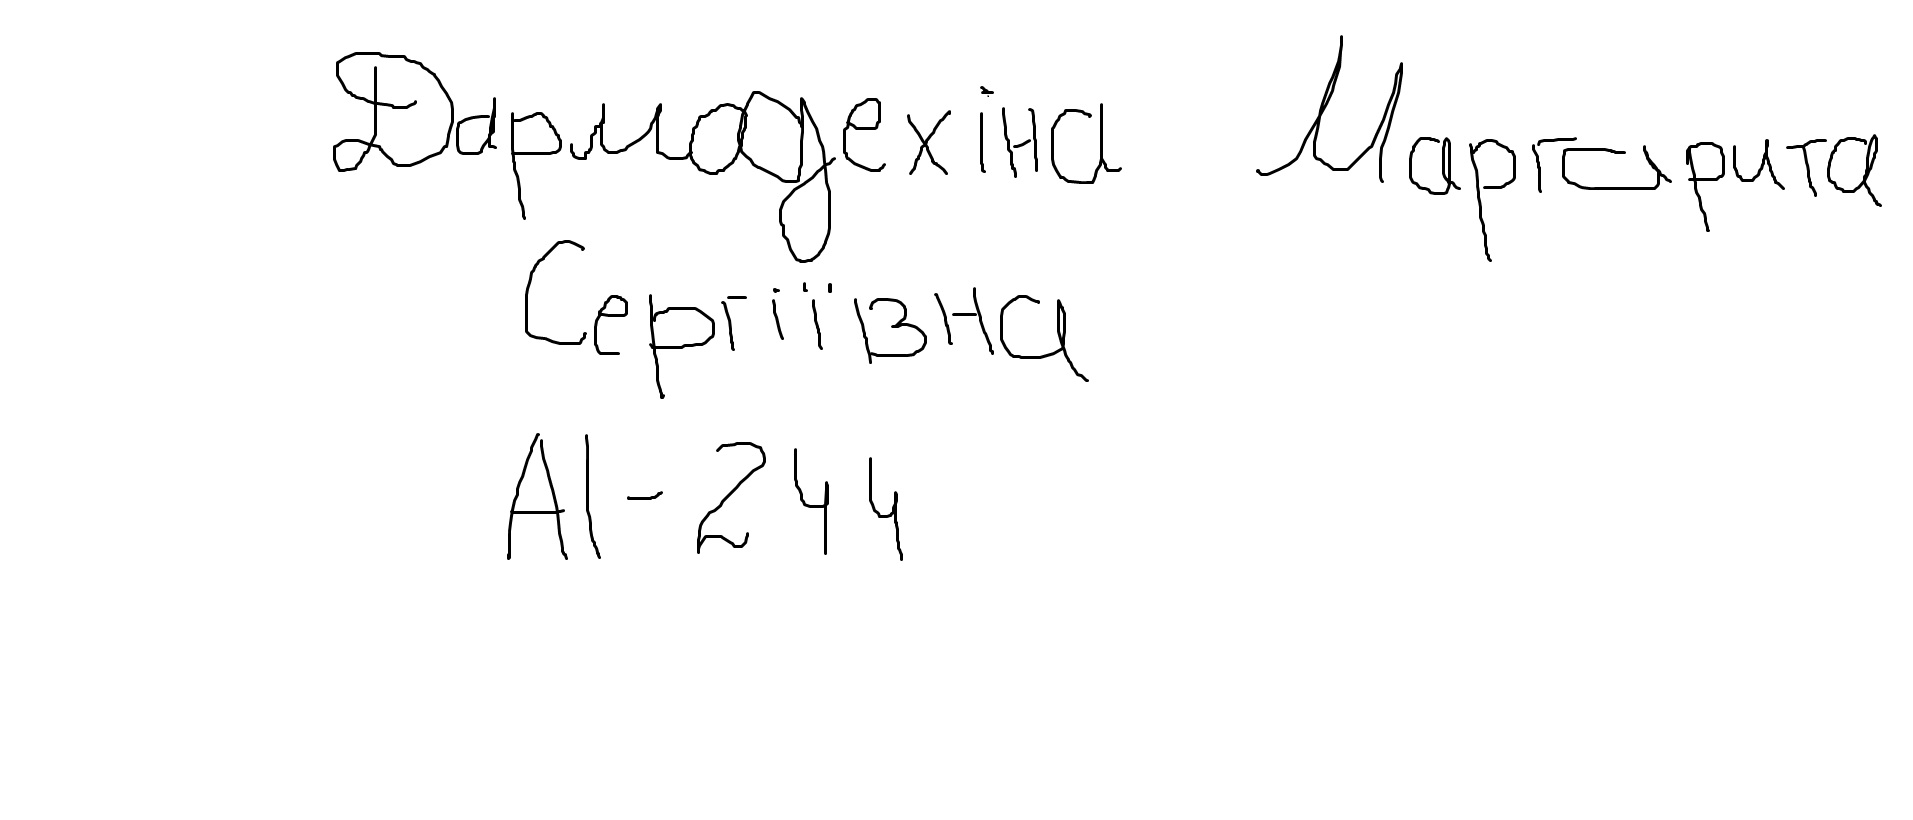 Дармадехіна Маргарита
Сергіївна
АІ-244